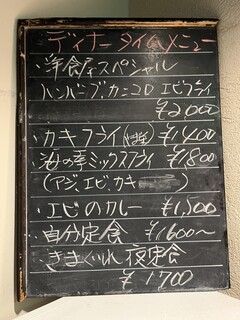 ディナータイムメニュー
・洋食屋スペシャル
ハンバーグ、カニコロ エビフライ
¥2,000
・カキフライ ¥1,400
・海の季ミックスフライ ¥1,800
(アジ、エビ、カキ )
・エビのカレー ¥1,500
・自分定食 ¥1600〜
きまぐれ夜定食
¥1700